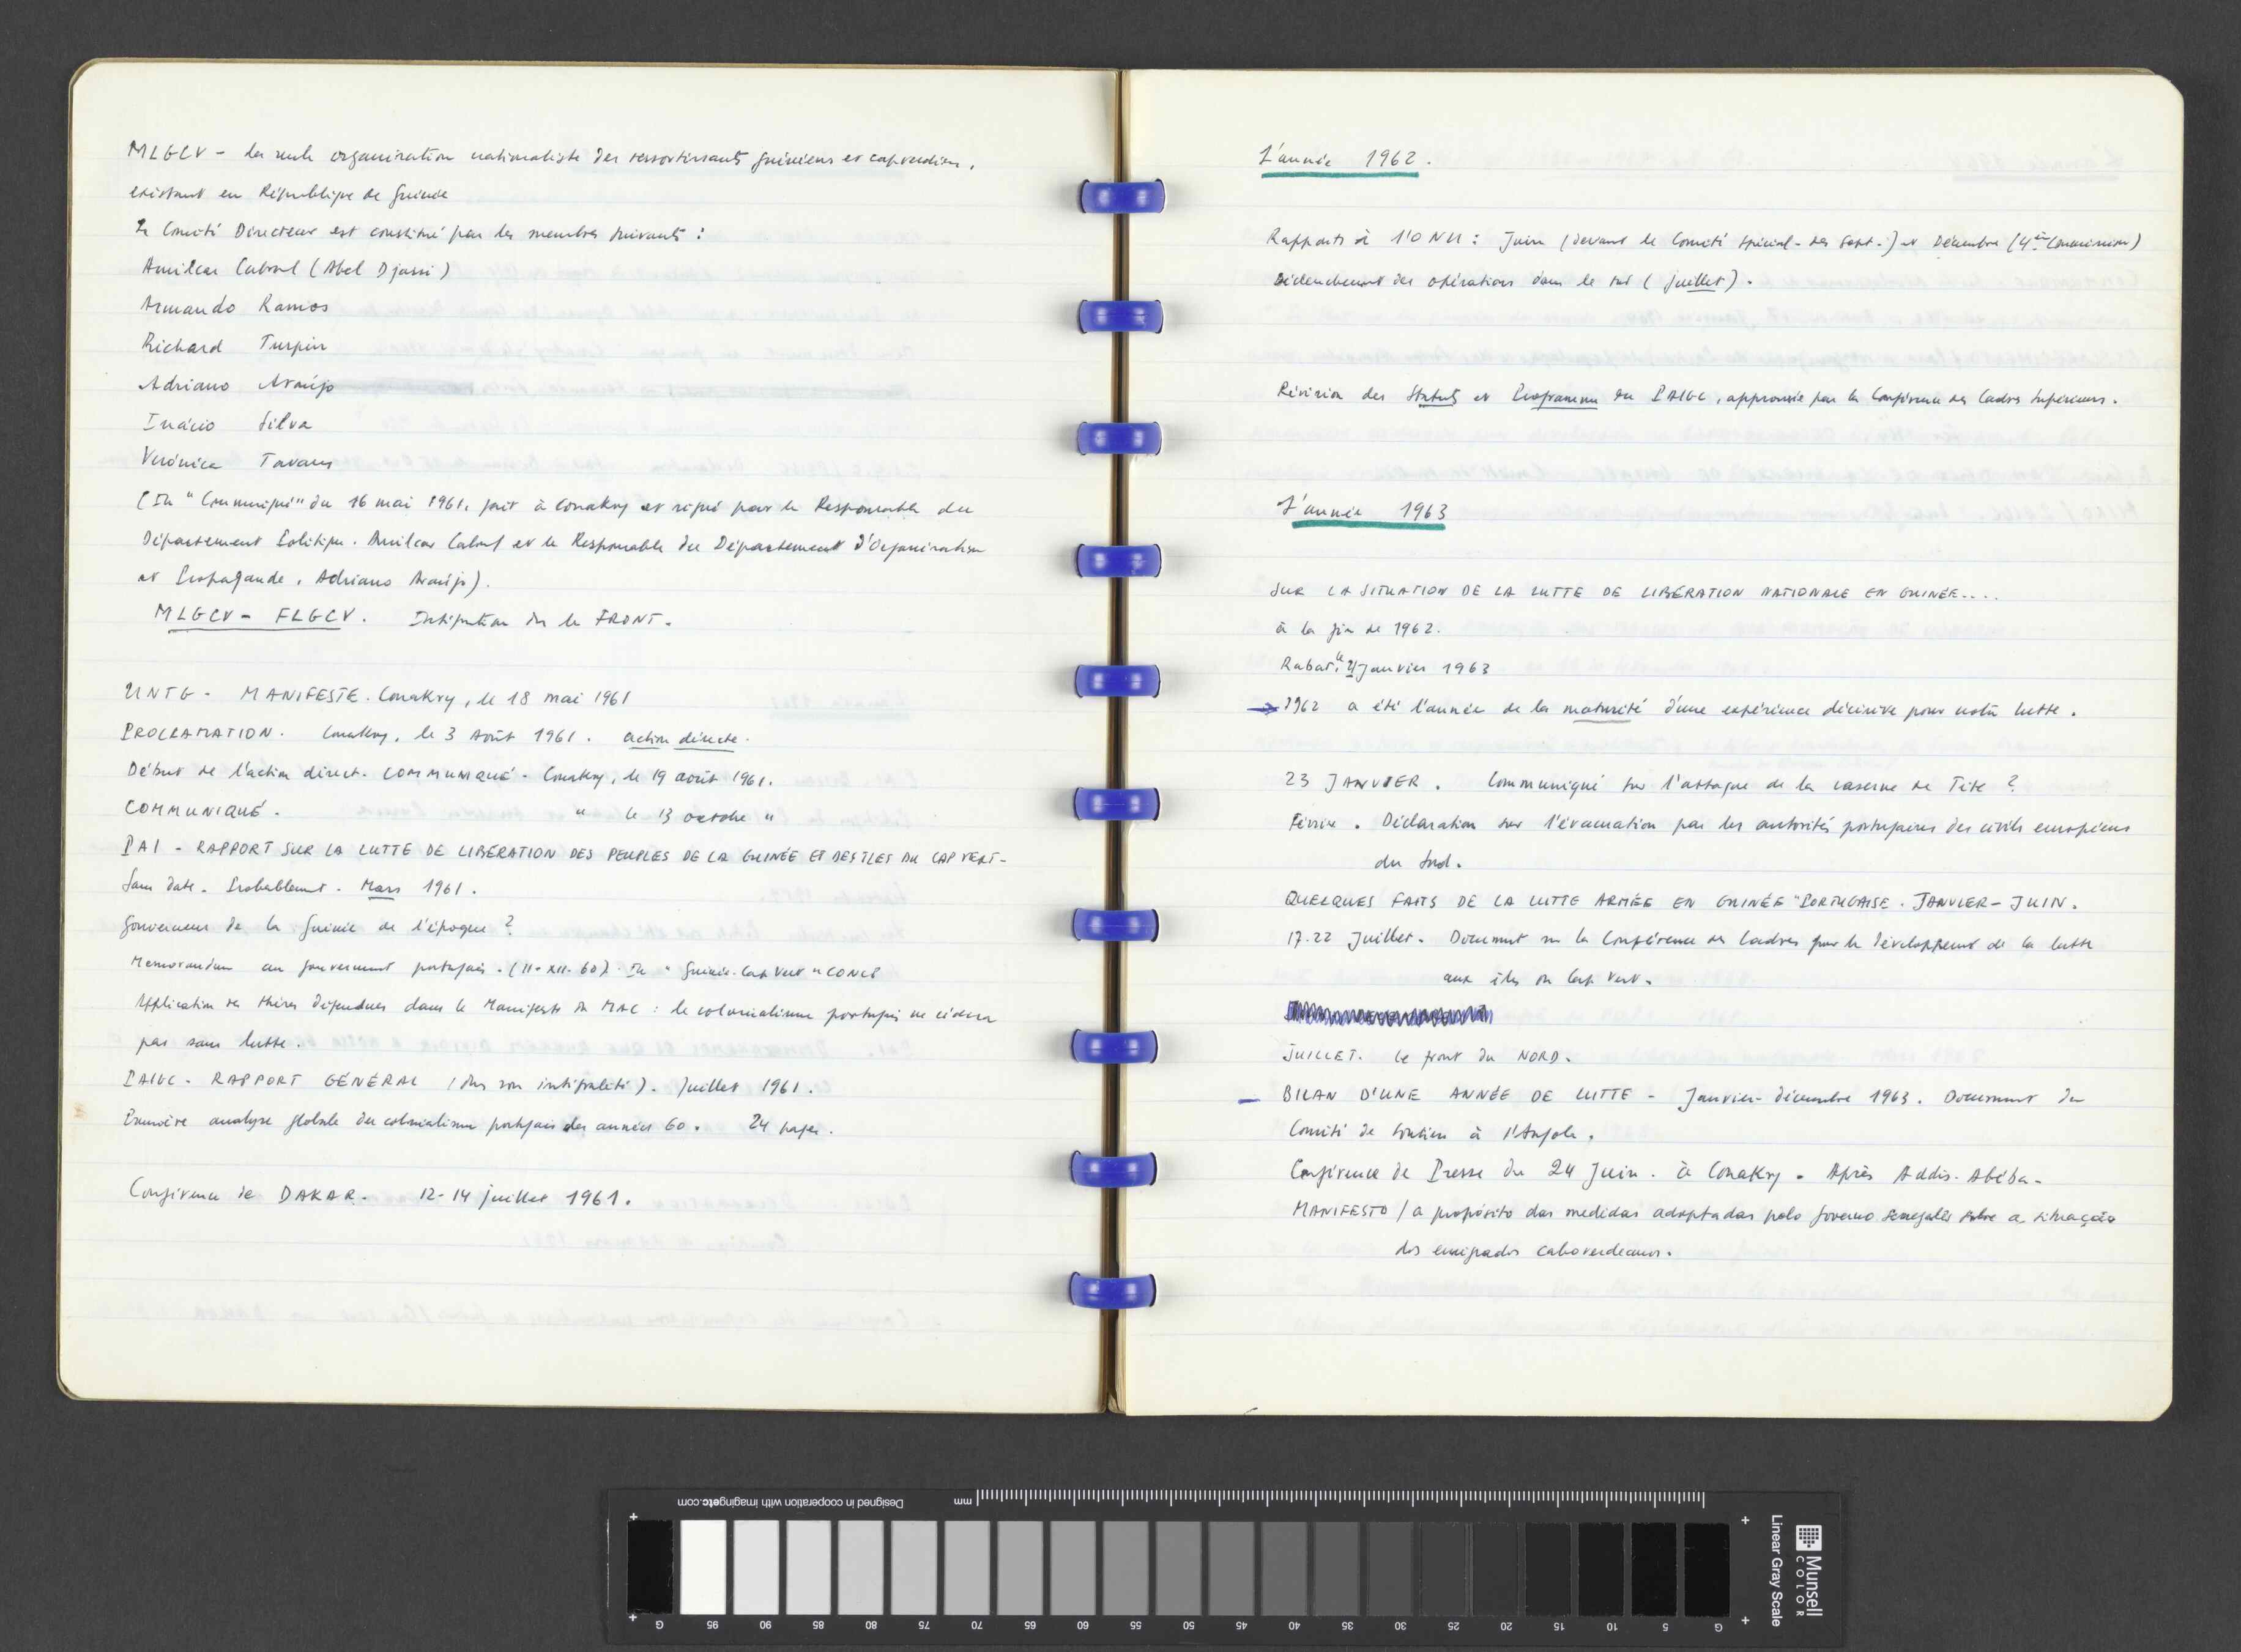 MLGCV - la seule organisation nationaliste des ressortissants guinéens et capverdiens,
existant en République de Guinée
Le Comité Directeur est constitué par les membres suivants :
Amilcar Cabral (Abel Djassi)
Armando Ramos
Richard Turpin
Adriano Araújo
Inácio Silva
Verónica Tavares
(In "Communiqué" du 16 mai 1961, fait à Conakry et signé par le Responsable du
Département Politique. Amilcar Cabral et le Responsable du Département d'Organisation
et Propagande, Adriano Araújo).
MLGCV - FLGCV. Intégration ds le FRONT.
UNTG - MANIFESTE. Conakry, le 18 mai 1961
PROCLAMATION. Conakry, le 3 Août 1961. action directe.
Début de l'action direct. COMMUNIQUÉ - Conakry, le 19 août 1961.
COMMUNIQUÉ. " le 13 octobre "
PAI - RAPPORT SUR LA LUTTE DE LIBERATION DES PEUPLES DE LA GUINÉE ET DES ILES DU CAP VERT -
Sans date. Probablement. Mars 1961.
Gouverneur de la Guinée de l'époque ?
Memorandum au gouvernement portugais. (11-XII-60). In " Guinée-Cap Vert " CONCP
Application des thèses défendues dans le Manifeste du MAC : le colonialisme portugais ne cédera
pas sans lutte.
PAIGC - RAPPORT GÉNÉRAL (ds son intégralité). Juillet 1961.
Première analyse globale du colonialisme portugais des années 60. 24 pages.
Conférence de DAKAR. 12-14 juillet 1961.
L'année 1962.
Rapports à l'ONU : Juin (devant le Comité spécial - des Sept -) et Décembre (4e Commission)
Déclenchement des opérations dans le sud (juillet).
Révision des Statuts et Programme du PAIGC, approuvée par la Conférence des Cadres Supérieurs.
L'année 1963
SUR LA SITUATION DE LA LUTTE DE LIBÉRATION NATIONALE EN GUINÉE....
à la fin de 1962.
Rabat, le 21 Janvier 1963
→ 1962 a été l'année de la maturité d'une expérience décisive pour notre lutte.
23 JANVIER. Communiqué sur l'attaque de la caserne de Tite ?
Février. Déclaration sur l'évacuation par les autorités portugaises des civils européens
du Sud.
QUELQUES FAITS DE LA LUTTE ARMÉE EN GUINÉE "PORTUGAISE. JANVIER - JUIN.
17-22 Juillet. Document sur la Conférence des Cadres pour le développement de la lutte
aux îles du Cap Vert.
JUILLET. Le front du NORD.
- BILAN D'UNE ANNÉE DE LUTTE - Janvier-décembre 1963. Document du
Comité de Soutien à l'Angola.
Conférence de Presse du 24 Juin. à Conakry. Après Addis-Abéba.
MANIFESTO / a propósito das medidas adoptadas pelo governo senegalês sobre a situação
dos emigrados caboverdeanos.
Munsell
COLOR
Linear Gray Scale
mm
Designed in cooperation with imagingetc.com
G 95 90 85 80 75 70 65 60 55 50 45 40 35 30 25 20 15 10 5 G